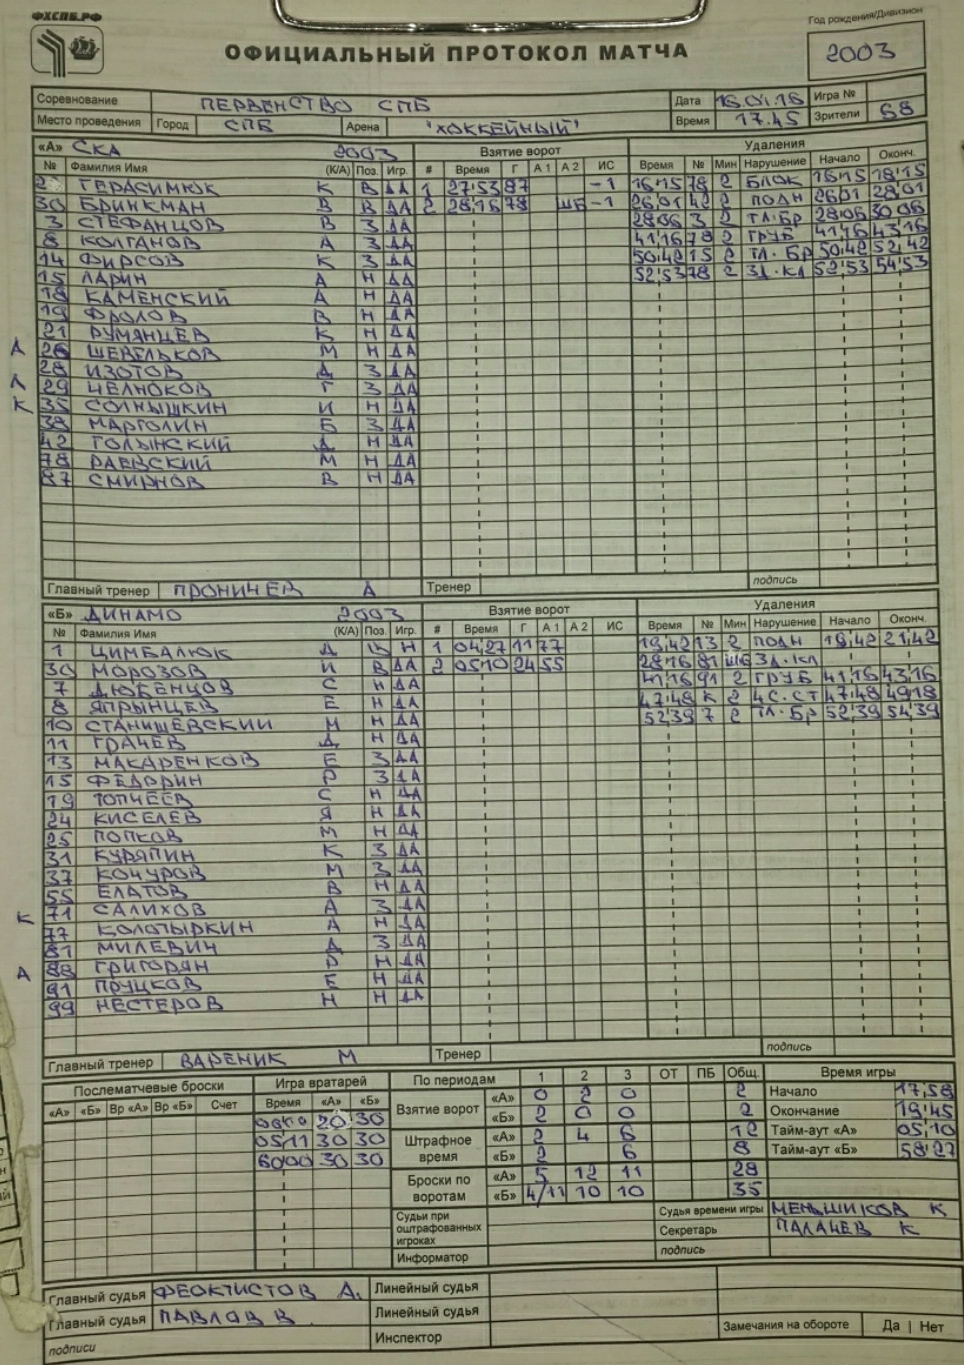 ФХСПБ.РФ
Год рождения/Дивизион
ОФИЦИАЛЬНЫЙ ПРОТОКОЛ МАТЧА
2003
Соревнование ПЕРВЕНСТВО СПБ Дата 16.01.16 Игра №
Место проведения Город СПБ Арена "ХОККЕЙНЫЙ" Время 17.45 Зрители 68
«А» СКА 2003 Взятие ворот Удаления
№ Фамилия Имя (К/А) Поз. Игр. # Время Г А 1 А 2 ИС Время № Мин Нарушение Начало Оконч.
ГЕРАСИМЮК К В ДА 1 27:53 87 -1 16:15 78 2 БЛОК 16:15 18:15
30 БРИНКМАН В В ДА 2 28:16 78 ШБ -1 26:01 42 2 ПОДН 26:01 28:01
3 СТЕФАНЦОВ В З ДА 28:06 3 2 ТЛ.БР 28:06 30:06
8 КОЛГАНОВ А З ДА 41:16 78 2 ГРУБ 41:16 43:16
14 ФИРСОВ К З ДА 50:42 15 2 ТЛ.БР 50:42 52:42
15 ЛАРИН А Н ДА 52:53 78 2 ЗД.КЛ 52:53 54:53
18 КАМЕНСКИЙ А Н ДА
19 ФРОЛОВ В Н ДА
21 РУМЯНЦЕВ К Н ДА
А 26 ШЕВЕЛЬКОВ М Н ДА
28 ИЗОТОВ Д З ДА
А 29 ЧЕЛНОКОВ Г З ДА
К 35 СОЛНЫШКИН И Н ДА
38 МАРГОЛИН Б З ДА
42 ГОЛЫНСКИЙ Д Н ДА
78 РАЕВСКИЙ М Н ДА
87 СМИРНОВ В Н ДА
Главный тренер ПРОНИЧЕВ А Тренер подпись
«Б» ДИНАМО 2003 Взятие ворот Удаления
№ Фамилия Имя (К/А) Поз. Игр. # Время Г А 1 А 2 ИС Время № Мин Нарушение Начало Оконч.
1 ЦИМБАЛЮК Д В Н 1 04:27 11 77 19:42 13 2 ПОДН 19:42 21:42
30 МОРОЗОВ И В ДА 2 05:10 24 55 28:16 81 ШБ ЗД.КЛ
7 ДЮБЕНЦОВ С Н ДА 41:16 91 2 ГРУБ 41:16 43:16
8 ЯПРЫНЦЕВ Е Н ДА 47:48 К 2 ЧС.СТ 47:48 49:18
10 СТАНИШЕВСКИЙ М Н ДА 52:39 7 2 ТЛ.БР 52:39 54:39
11 ГРАЧЕВ Д Н ДА
13 МАКАРЕНКОВ Е З ДА
15 ФЕДОРИН Р З ДА
19 ТОПЧЕЕВ С Н ДА
24 КИСЕЛЕВ Я Н ДА
25 ПОПКОВ М Н ДА
31 КУРЯПИН К З ДА
37 КОЧУРОВ М З ДА
55 ЕЛАТОВ В Н ДА
К 71 САЛИХОВ А З ДА
77 КОЛОТЫРКИН А Н ДА
81 МИЛЕВИЧ Д З ДА
А 88 ГРИГОРЯН Р Н ДА
91 ПРУЦКОВ Е Н ДА
99 НЕСТЕРОВ Н Н ДА
Главный тренер ВАРЕНИК М Тренер подпись
Послематчевые броски Игра вратарей По периодам 1 2 3 ОТ ПБ Общ. Время игры
«А» «Б» Вр «А» Вр «Б» Счет Время «А» «Б» Взятие ворот «А» 0 2 0 2 Начало 17,58
20 30 «Б» 2 0 0 2 Окончание 19:45
05:11 30 30 Штрафное время «А» 2 4 6 12 Тайм-аут «А» 05,10
60:00 30 30 «Б» 2 6 8 Тайм-аут «Б» 58:27
Броски по воротам «А» 5 12 11 28
«Б» 4/11 10 10 35
Судьи при оштрафованных игроках Судья времени игры МЕНЬШИКОВ К
Секретарь ПАЛАЧЕВ К
Информатор подпись
Главный судья ФЕОКТИСТОВ А. Линейный судья
Главный судья ПАВЛОВ В Линейный судья
подписи Инспектор Замечания на обороте Да | Нет